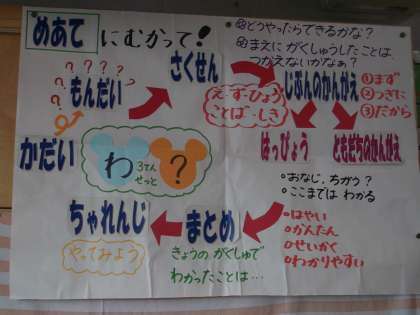 めあて にむかって!
? ? ? ? ? ?
もんだい
さくせん
㋱どうやったらできるかな?
㋱まえに がくしゅうしたことは、
つかえないかなぁ?
え・ず・ひょう
ことば・しき
じぶんのかんがえ
①まず
②つぎに
③だから
はっぴょう
ともだちのかんがえ
かだい
わ 3てんせっと ?
・おなじ、ちがう?
・ここまでは わかる
・はやい
・かんたん
・せいかく
・わかりやすい
まとめ
きょうの がくしゅで
わかったことは…
ちゃれんじ
やってみよう